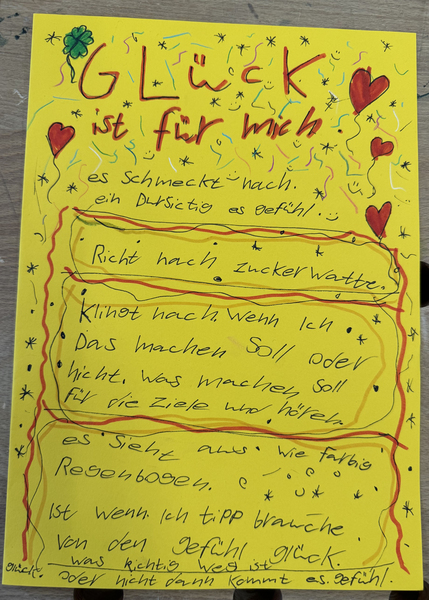 GLücK
ist für mich.
es Schmeckt nach.
ein Dursictig es gefühl.
Richt nach Zuckerwatte.
Klingt nach. Wenn Ich
Das machen Soll oder
nicht. Was machen Soll
Für die Ziele und hören.
es Sieht aus. wie farbig
Regenbogen.
Ist wenn Ich tipp brauche
von den gefühl glück.
was richtig weg ist
glück. oder nicht dann kommt es gefühl.